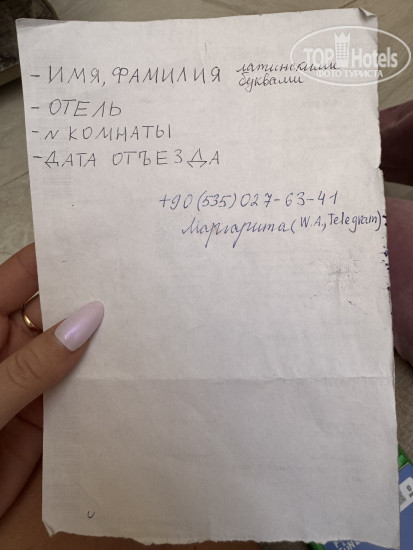 TOPHotels
ФОТО ТУРИСТА
- ИМЯ, ФАМИЛИЯ латинскими буквами
- ОТЕЛЬ
- N КОМНАТЫ
- ДАТА ОТЪЕЗДА
+90(535)027-63-41
Маргарита (W.A, Telegram)